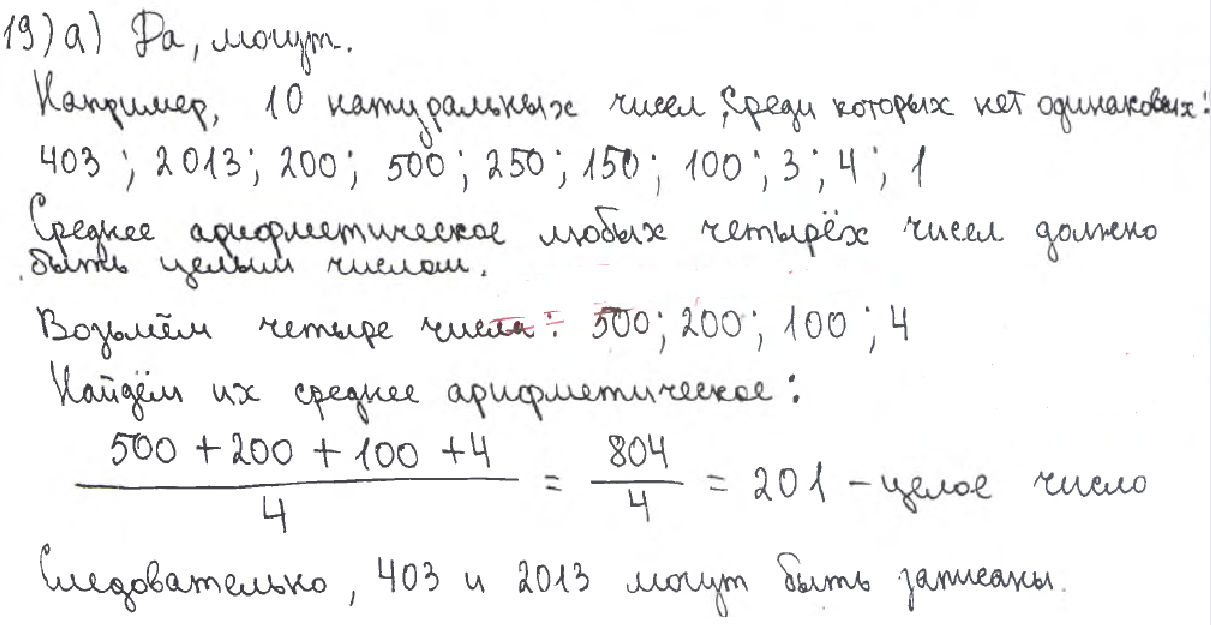 19) а) Да, могут.
Например, 10 натуральных чисел, среди которых нет одинаковых:
403; 2013; 200; 500; 250; 150; 100; 3; 4; 1
Среднее арифметическое любых четырёх чисел должно
быть целым числом.
Возьмём четыре числа: 500; 200; 100; 4
Найдём их среднее арифметическое:
500 + 200 + 100 + 4 / 4 = 804 / 4 = 201 – целое число
Следовательно, 403 и 2013 могут быть записаны.